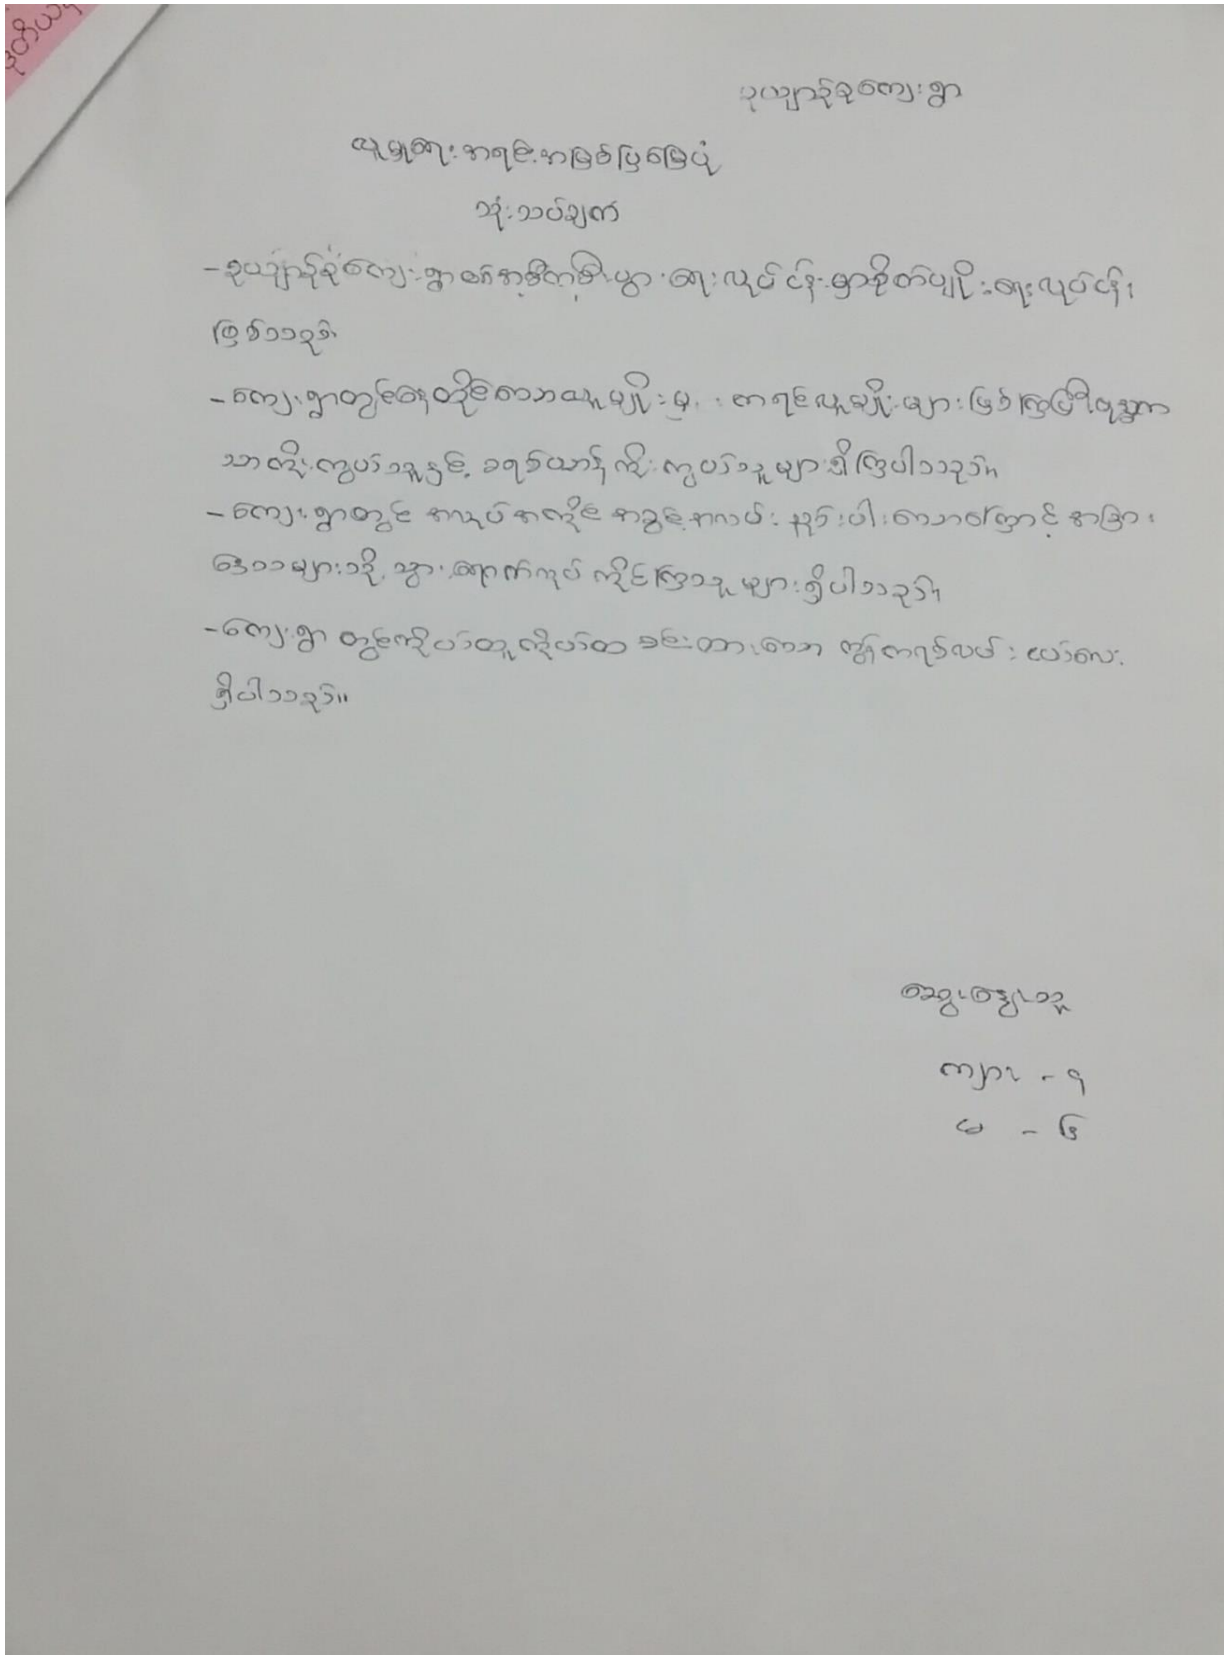 ဒုတိယ
ခုယျာဉ်ခုကျေးရွာ
လူမှုရေးအရင်းအမြစ်ပြမြေပုံ
သုံးသပ်ချက်
-ခုယျာဉ်ခုံကျေးရွာ၏အဓိကစီးပွားရေးလုပ်ငန်းမှာစိုက်ပျိုးရေးလုပ်ငန်း
ဖြစ်သည်
-ကျေးရွာတွင်နေထိုင်သောလူမျိုးမှ ကရင်လူမျိုးများဖြစ်ကြပြီးဗုဒ္ဓဘာ
သာကိုးကွယ်သူနှင့် ခရစ်ယာန်ကိုးကွယ်သူများရှိကြပါသည်။
-ကျေးရွာတွင် အလုပ်အကိုင် အခွင့်အလမ်းနည်းပါးသောကြောင့်အခြား
ဒေသများသို့သွားရောက်လုပ်ကိုင်ကြသူများရှိပါသည်။
-ကျေးရွာ တွင်ကိုယ်ထူကိုယ်ထ ခင်းထားသော ကွန်ကရစ်လမ်းပေါ်လေး
ရှိပါသည်။
ဆွေးနွေးသူ
ကျား - ၅
မ - ၆